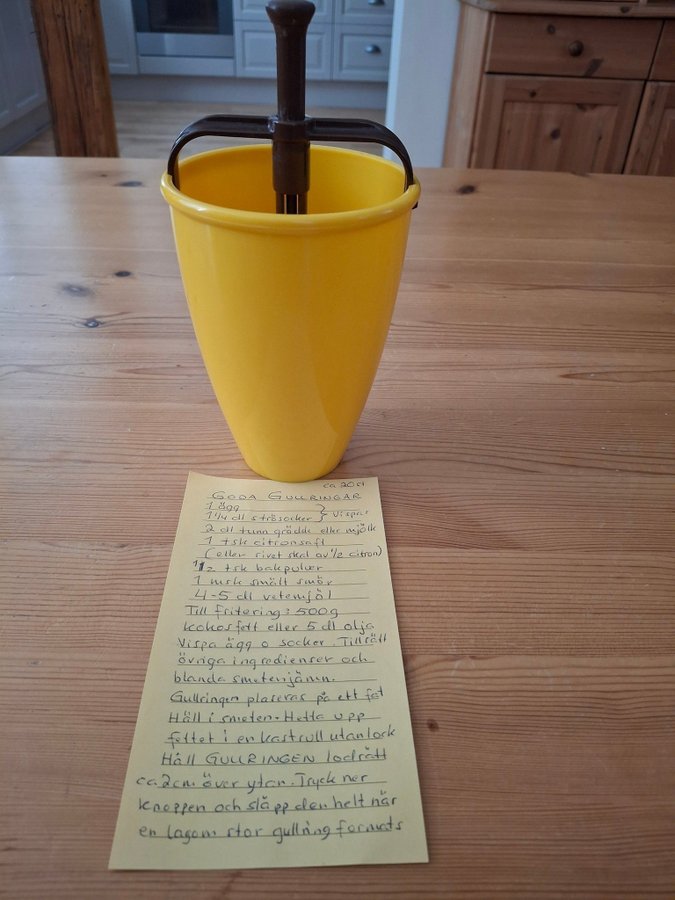 ca 20 st
GODA GULLRINGAR
1 ägg
1 1/4 dl strösocker } Vispas
2 dl tunn grädde eller mjölk
1 tsk citronsaft
(eller rivet skal av 1/2 citron)
1 1/2 tsk bakpulver
1 msk smält smör
4-5 dl vetemjöl
Till fritering: 500g
kokosfett eller 5 dl olja
Vispa ägg o socker. Tillsätt
övriga ingredienser och
blanda smeten jämn.
Gullringen placeras på ett fat
Häll i smeten. Hetta upp
fettet i en kastrull utan lock
Håll GULLRINGEN lodrätt
ca 2cm över ytan. Tryck ner
knoppen och släpp den helt när
en lagom stor gullring formats